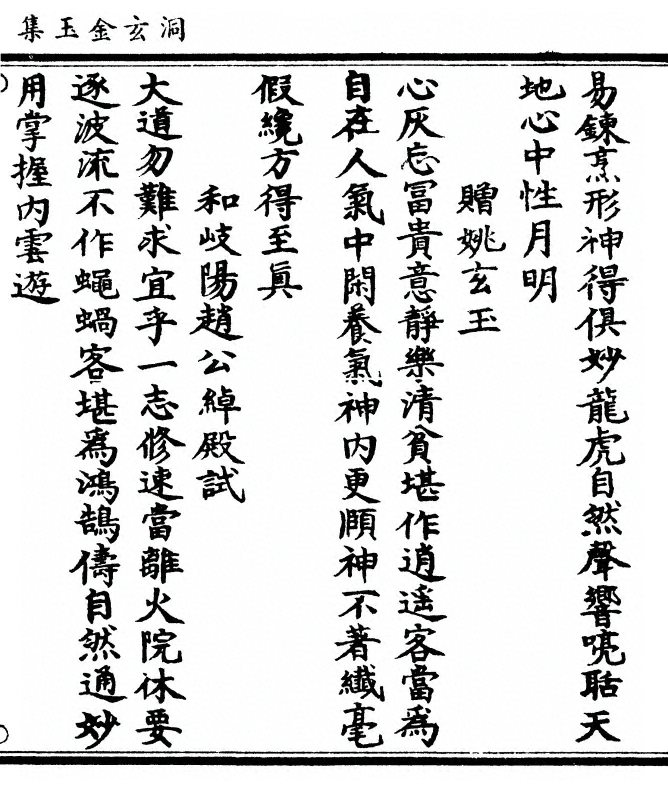 洞玄金玉集
易鍊烹形神得俱妙龍虎自然聲響喨聒天
地心中性月明
贈姚玄玉
心灰忘冨貴意靜樂清貧堪作逍遥客當爲
自在人氣中閑養氣神内更頥神不著纖毫
假纔方得至眞
和岐陽趙公綽殿試
大道勿難求宜乎一志修速當離火院休要
逐波流不作蠅蝸客堪爲鴻鵠儔自然通妙
用掌握内雲遊